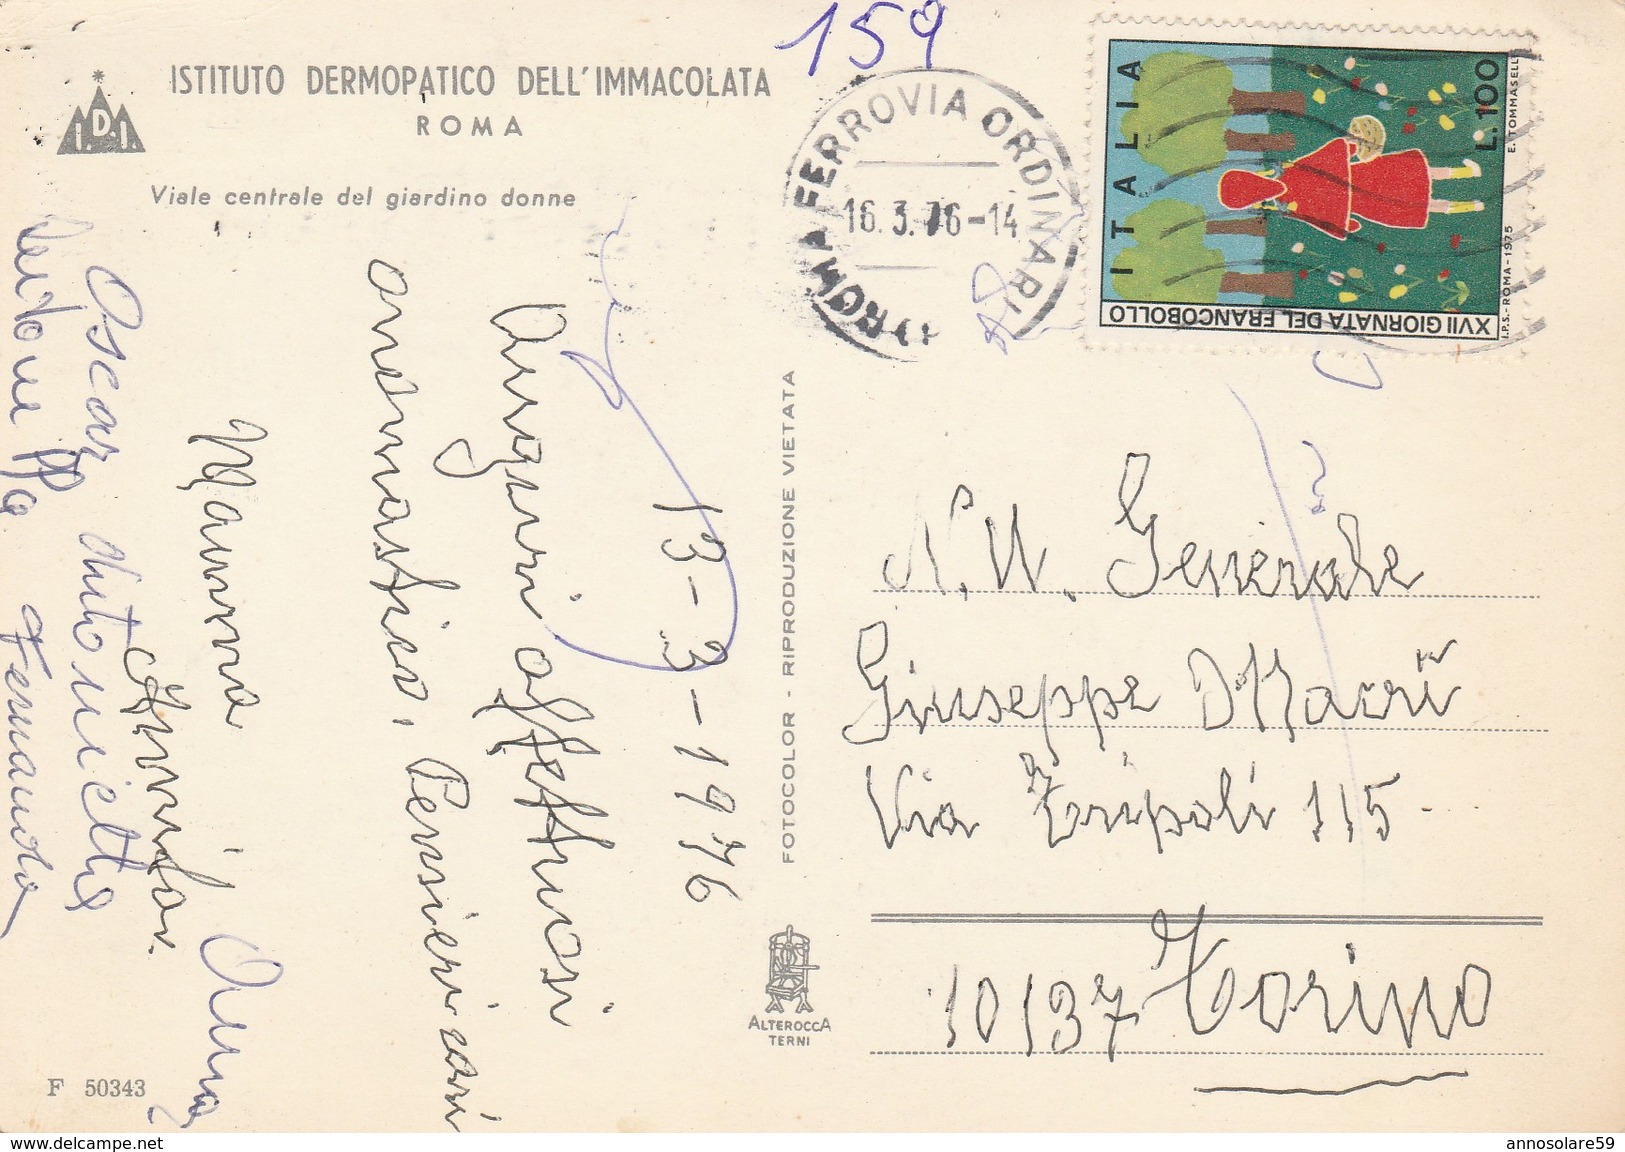 159
ISTITUTO DERMOPATICO DELL'IMMACOLATA
ROMA
I.D.I.
Viale centrale del giardino donne
ROMA FERROVIA ORDINARI
16.3.76-14
ITALIA
L.100
XVII GIORNATA DEL FRANCOBOLLO
I.P.S.-ROMA-1975
E. TOMMASELLI
13-3-1976
Auguri affettuosi
onomastico. Pensieri cari
Mamma
Anna
Oscar Antonietta
Fernando
FOTOCOLOR - RIPRODUZIONE VIETATA
N.U. Generale
Giuseppe Macrì
Via Tripoli 115
10137 Torino
ALTEROCCA
TERNI
F 50343
www.delcampe.net
annosolare59